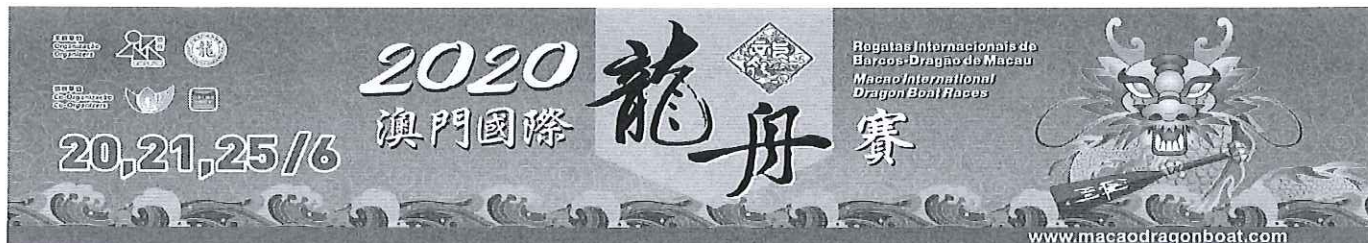 主辦單位
Organização
Organizers
龍
協辦單位
Co-Organização
Co-Organizers
20,21,25/6
2020
澳門國際
龍舟
賽
Regatas Internacionais de
Barcos-Dragão de Macau
Macao International
Dragon Boat Races
www.macaodragonboat.com